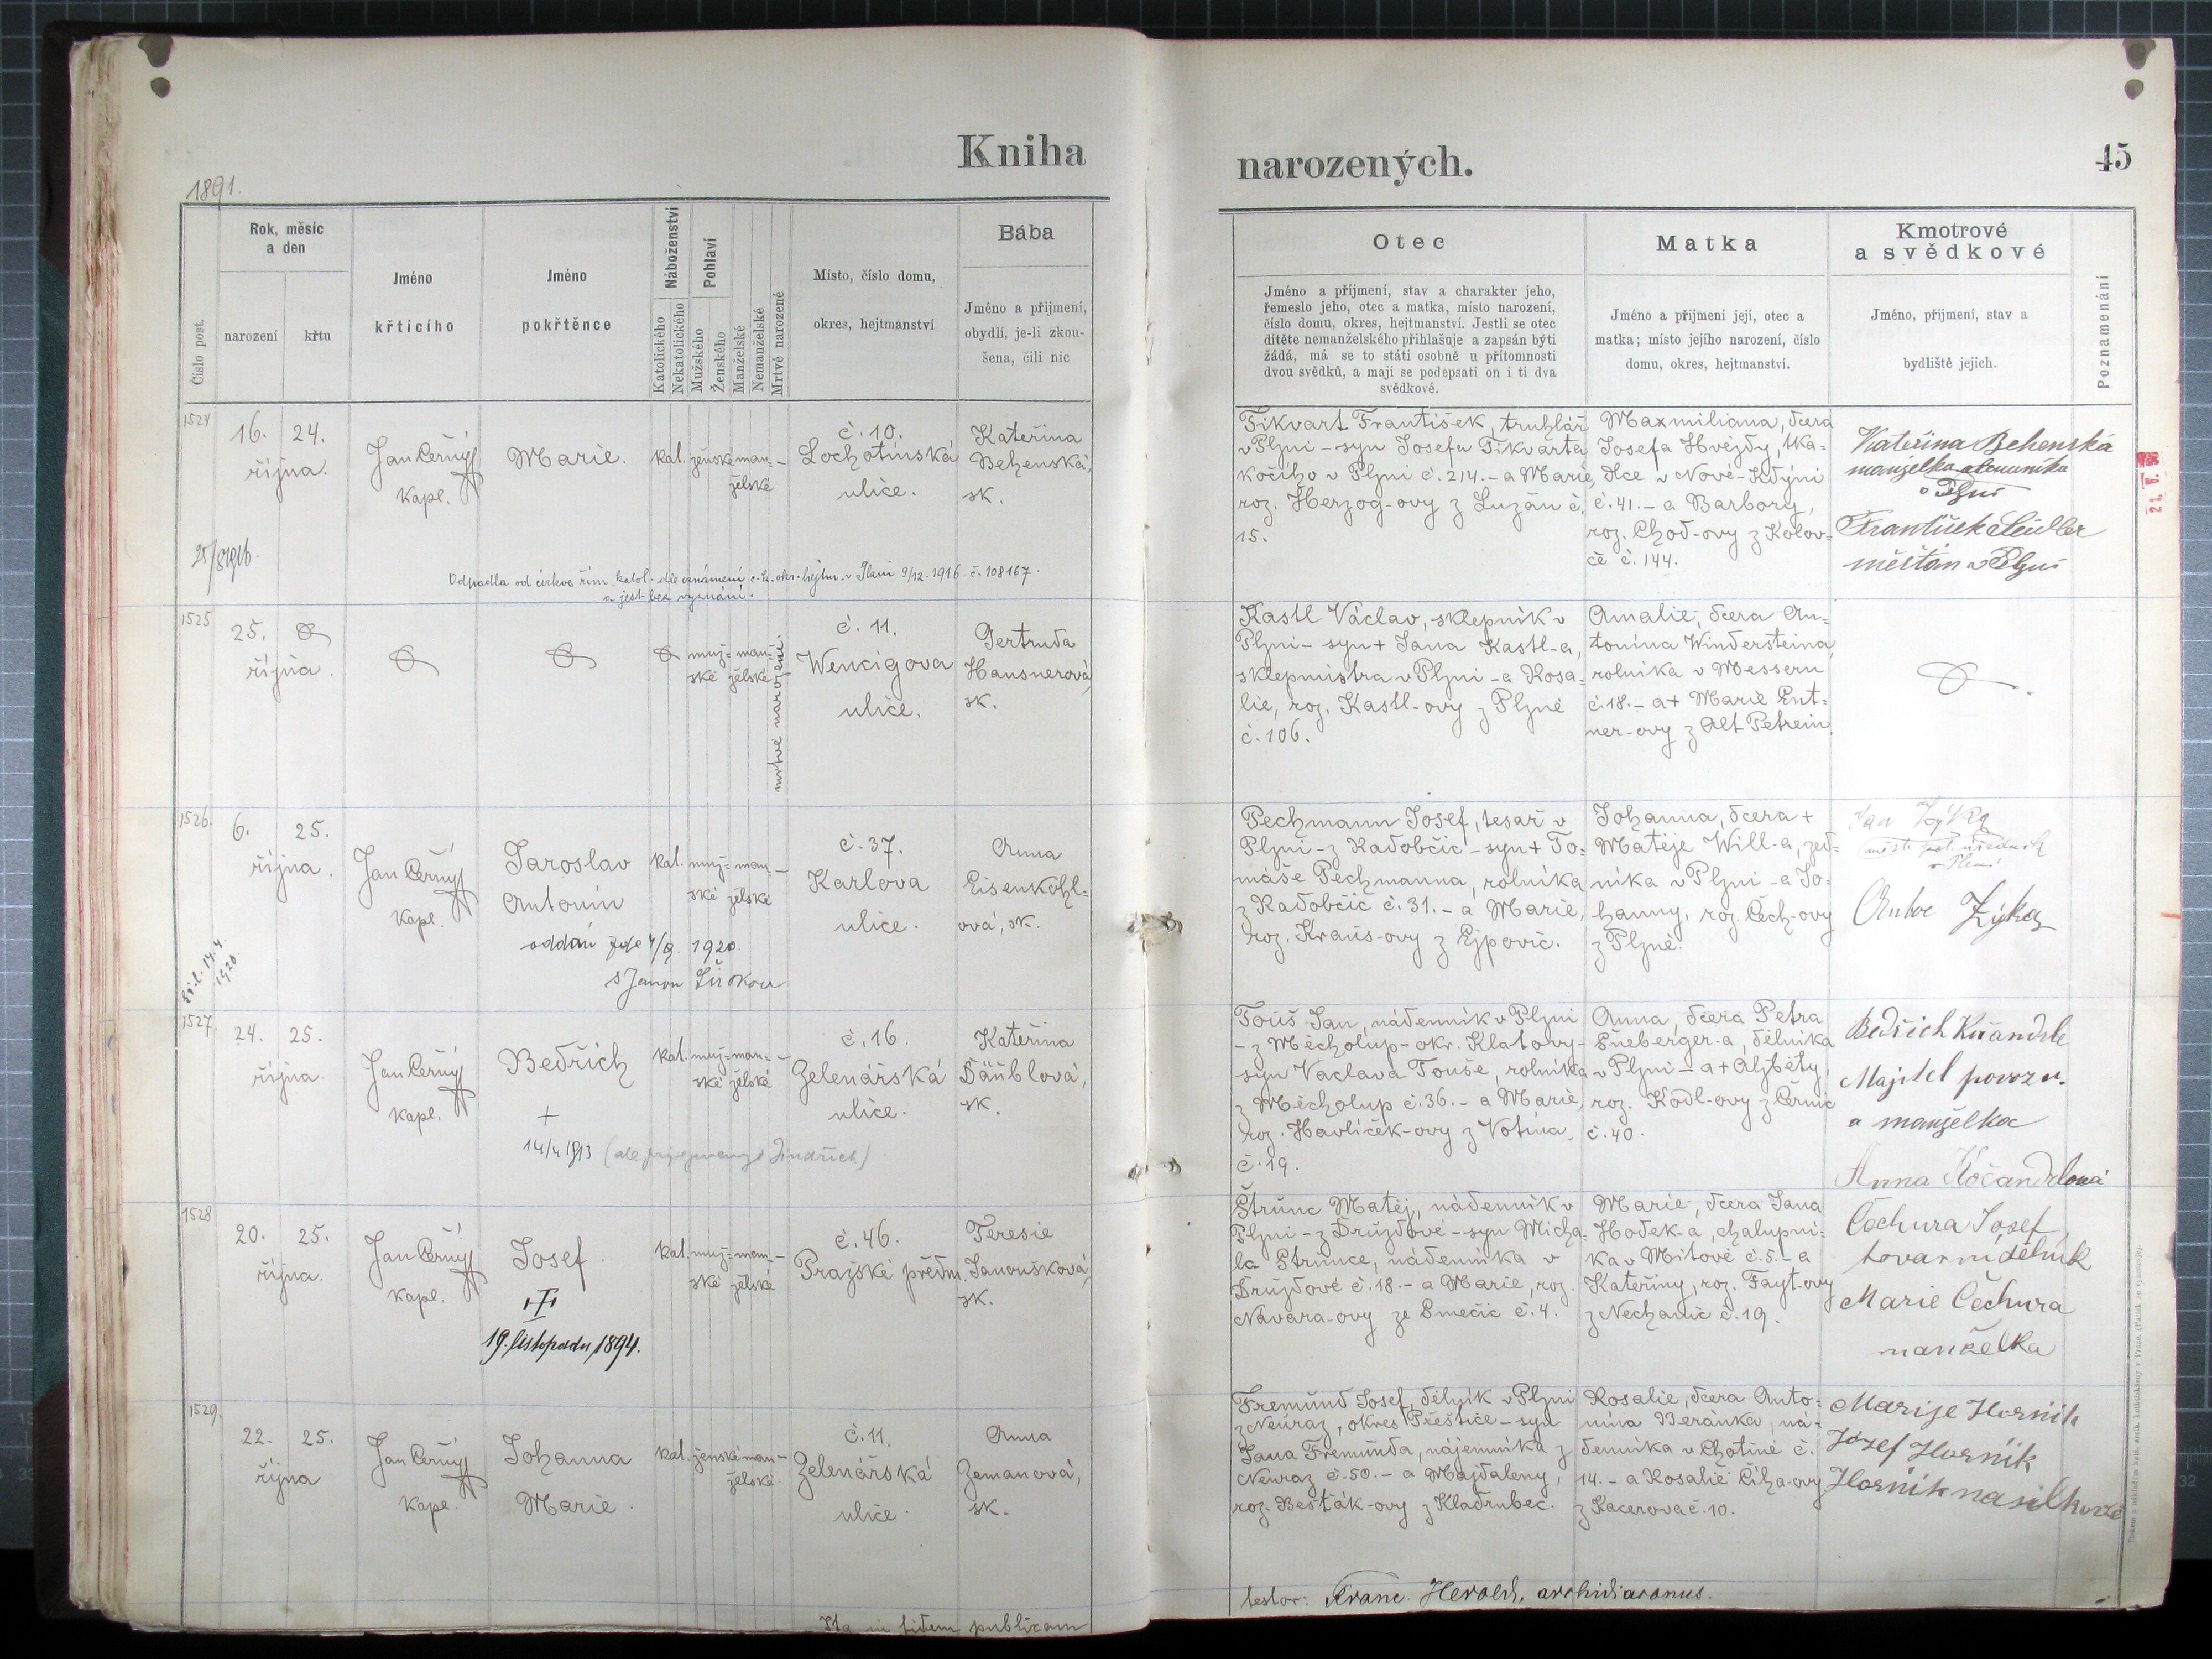 Kniha
narozených.
45
1891.
Číslo post.
Rok, měsíc
a den
narození
křtu
Jméno
křtícího
Jméno
pokřtěnce
Náboženství
Katolického
Nekatolického
Pohlaví
Mužského
Ženského
Manželské
Nemanželské
Mrtvé narozené
Místo, číslo domu,
okres, hejtmanství
Bába
Jméno a příjmení,
obydlí, je-li zkou-
šena, čili nic
Otec
Jméno a příjmení, stav a charakter jeho,
řemeslo jeho, otec a matka, místo narození,
číslo domu, okres, hejtmanství. Jestli se otec
dítěte nemanželského přihlašuje a zapsán býti
žádá, má se to státi osobně u přítomnosti
dvou svědků, a mají se podepsati on i ti dva
svědkové.
Matka
Jméno a příjmení její, otec a
matka; místo jejího narození, číslo
domu, okres, hejtmanství.
Kmotrové
a svědkové
Jméno, příjmení, stav a
bydliště jejich.
Poznamenání
1524
16. 24.
října.
Jan Černý
kapl.
Marie.
kat. ženské man=
želské
č. 10.
Lochotínská
ulice.
Kateřina
Behenská,
sk.
Fikvart František, truhlář
v Plzni – syn Josefa Fikvarta
kočího v Plzni č. 214. – a Marie,
roz. Herzog-ovy z Lužan č.
15.
Maxmiliana, dcera
Josefa Hvězdy, tka-
dlce v Nové-Kdýni
č. 41. – a Barbory,
roz. Chod-ovy z Kolov-
če č. 144.
Kateřina Behenská
manželka
v Plzni
František
měšťan v Plzni
21. V.
Odpadla od církve řím. katol. dle oznámení c. k. okr. hejtm. v Plzni 9/12. 1916. č. 108167.
a jest bez vyznání.
1525
25.
října.
muž=
ské
man=
želské
mrtvě narozené.
č. 11.
Wenzigova
ulice.
Gertruda
Hausnerová,
sk.
Kastl Václav, sklepník v
Plzni – syn + Jana Kastl-a,
sklepmistra v Plzni – a Rosa-
lie, roz. Kastl-ovy z Plzně
č. 106.
Amalie, dcera An=
tonína Windersteina,
rolníka v Messern
č. 18. – a + Marie Ent=
ner-ovy z Alt Petrein.
1526
6. 25.
října.
Jan Černý
kapl.
Jaroslav
Antonín
kat. muž= man=
ské želské
č. 37.
Karlova
ulice.
Anna
Eisenkohl-
ová, sk.
Pechmann Josef, tesař v
Plzni – z Kadobčic – syn + To=
máše Pechmanna, rolníka
z Kadobčic č. 31. – a Marie,
roz. Kraus-ovy z Ejpovic.
Johanna, dcera +
Matěje Will-a, zed-
níka v Plzni – a Jo=
hanny, roz. Čech-ovy
z Plzně.
Jan Zýka
v Plzni
Zýka
oddán zde 4/9. 1920
s Janou
1920.
1527
24. 25.
října.
Jan Černý
kapl.
Bedřich
+
14/4 1913
kat. muž= man=
ské želské
č. 16.
Zelenářská
ulice.
Kateřina
Däüblová,
sk.
Touš Jan, nádenník v Plzni
– z Měcholup – okr. Klatovy –
syn Václava Touše, rolníka
z Měcholup č. 36. – a Marie,
roz. Havlíček-ovy z Votína
č. 19.
Anna, dcera Petra
Šneberger-a, dělníka
v Plzni – a + Alžběty,
roz. Kodl-ovy z Černic
č. 40.
Bedřich Kočandrle
Majitel povozu.
a manželka
Anna Kočandrlová
1528
20. 25.
října.
Jan Černý
kapl.
Josef
19. listopadu 1894.
kat. muž= man=
ské želské
č. 46.
Pražské předm.
Teresie
Janoušková,
sk.
Štrunc Matěj, nádenník v
Plzni – z Družďové – syn Micha=
la Štrunce, nádenníka v
Družďové č. 18. – a Marie, roz.
Navara-ovy ze Směčic č. 4.
Marie, dcera Jana
Hodek-a, chalupní=
ka v Mítově č. 5. – a
Kateřiny, roz. Fayt-ovy
z Nechanic č. 19.
Čechura Josef
továrni dělník
Marie Čechura
manželka
1529.
22. 25.
října
Jan Černý
kapl.
Johanna
Marie.
kat. ženské man=
želské
č. 11.
Zelenářská
ulice.
Anna
Zemanová,
sk.
Fremund Josef, dělník v Plzni
z Neuraz, okres Přeštice – syn
Jana Fremunda, nájemníka z
Neuraz č. 50. – a Majdaleny,
roz. Bešťák-ovy z Kladrubec.
Rosalie, dcera Anto=
nína Beránka, ná-
denníka v Chotiné č.
14. – a Rosalie Číha-ovy
z Kacerova č. 10.
Marije Hornik
Józef Hornik
Hornik na
Ita in fidem publicam
testor: Franc. Herold, archidiaconus.